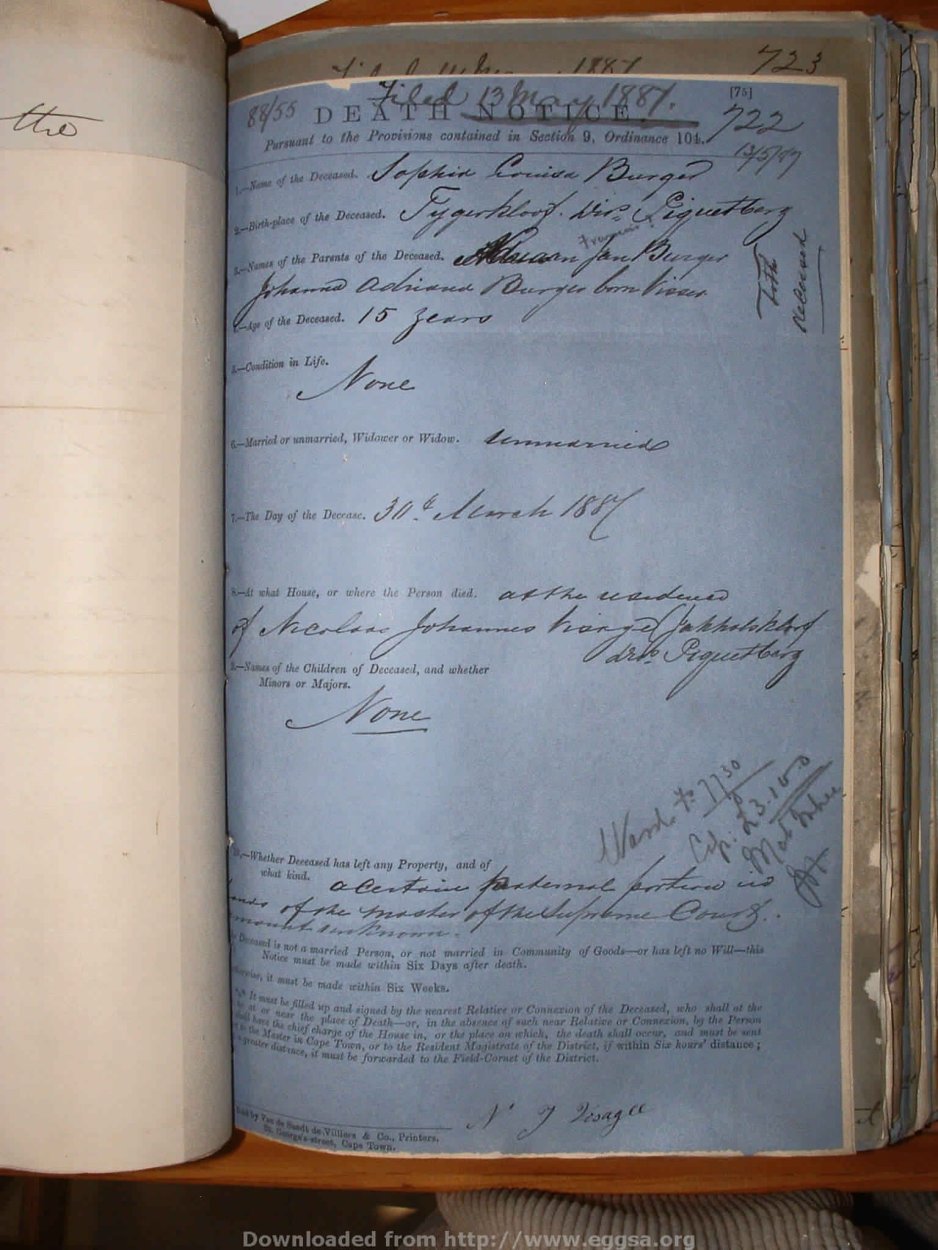 the
723
Filed 13 May 1887.
[75]
88/55 DEATH NOTICE.
722
Pursuant to the Provisions contained in Section 9, Ordinance 104.
13/5/87
1.—Name of the Deceased. Sophia Louisa Burger
2.—Birth-place of the Deceased. Tygerkloof. Divn. Piquetberg
3.—Names of the Parents of the Deceased. Jan Burger
Johanna Adriana Burger born Visser
both
deceased
4.—Age of the Deceased. 15 years
5.—Condition in Life.
None
6.—Married or unmarried, Widower or Widow. Unmarried
7.—The Day of the Decease. 30th March 1887
8.—At what House, or where the Person died. at the residence
of Nicolaas Johannes Visage Jakhalskloof
divn. Piquetberg
9.—Names of the Children of Deceased, and whether
Minors or Majors.
None
10.—Whether Deceased has left any Property, and of
what kind. a certain paternal portion in
of the Master of the Supreme Court.
amount unknown.
Deceased is not a married Person, or not married in Community of Goods—or has left no Will—this
Notice must be made within Six Days after death.
otherwise, it must be made within Six Weeks.
*** It must be filled up and signed by the nearest Relative or Connexion of the Deceased, who shall at the
at or near the place of Death—or, in the absence of such near Relative or Connexion, by the Person
shall have the chief charge of the House in, or the place on which, the death shall occur, and must be sent
to the Master in Cape Town, or to the Resident Magistrate of the District, if within Six hours' distance;
greater distance, it must be forwarded to the Field-Cornet of the District.
N J Visagee
Sold by Van de Sandt de Villiers & Co., Printers,
St. George's-street, Cape Town.
Downloaded from http://www.eggsa.org